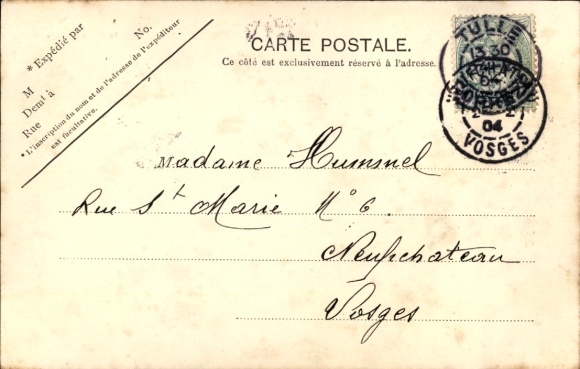 * Expédié par
No.
M
Demt à
Rue
*L'inscription du nom et de l'adresse de l'expéditeur
est facultative.
CARTE POSTALE.
Ce côté est exclusivement réservé à l'adresse.
TULLE
13 30
04
04
VOSGES
Madame Hummel
Rue St Marie No 6
Neufchateau
Vosges